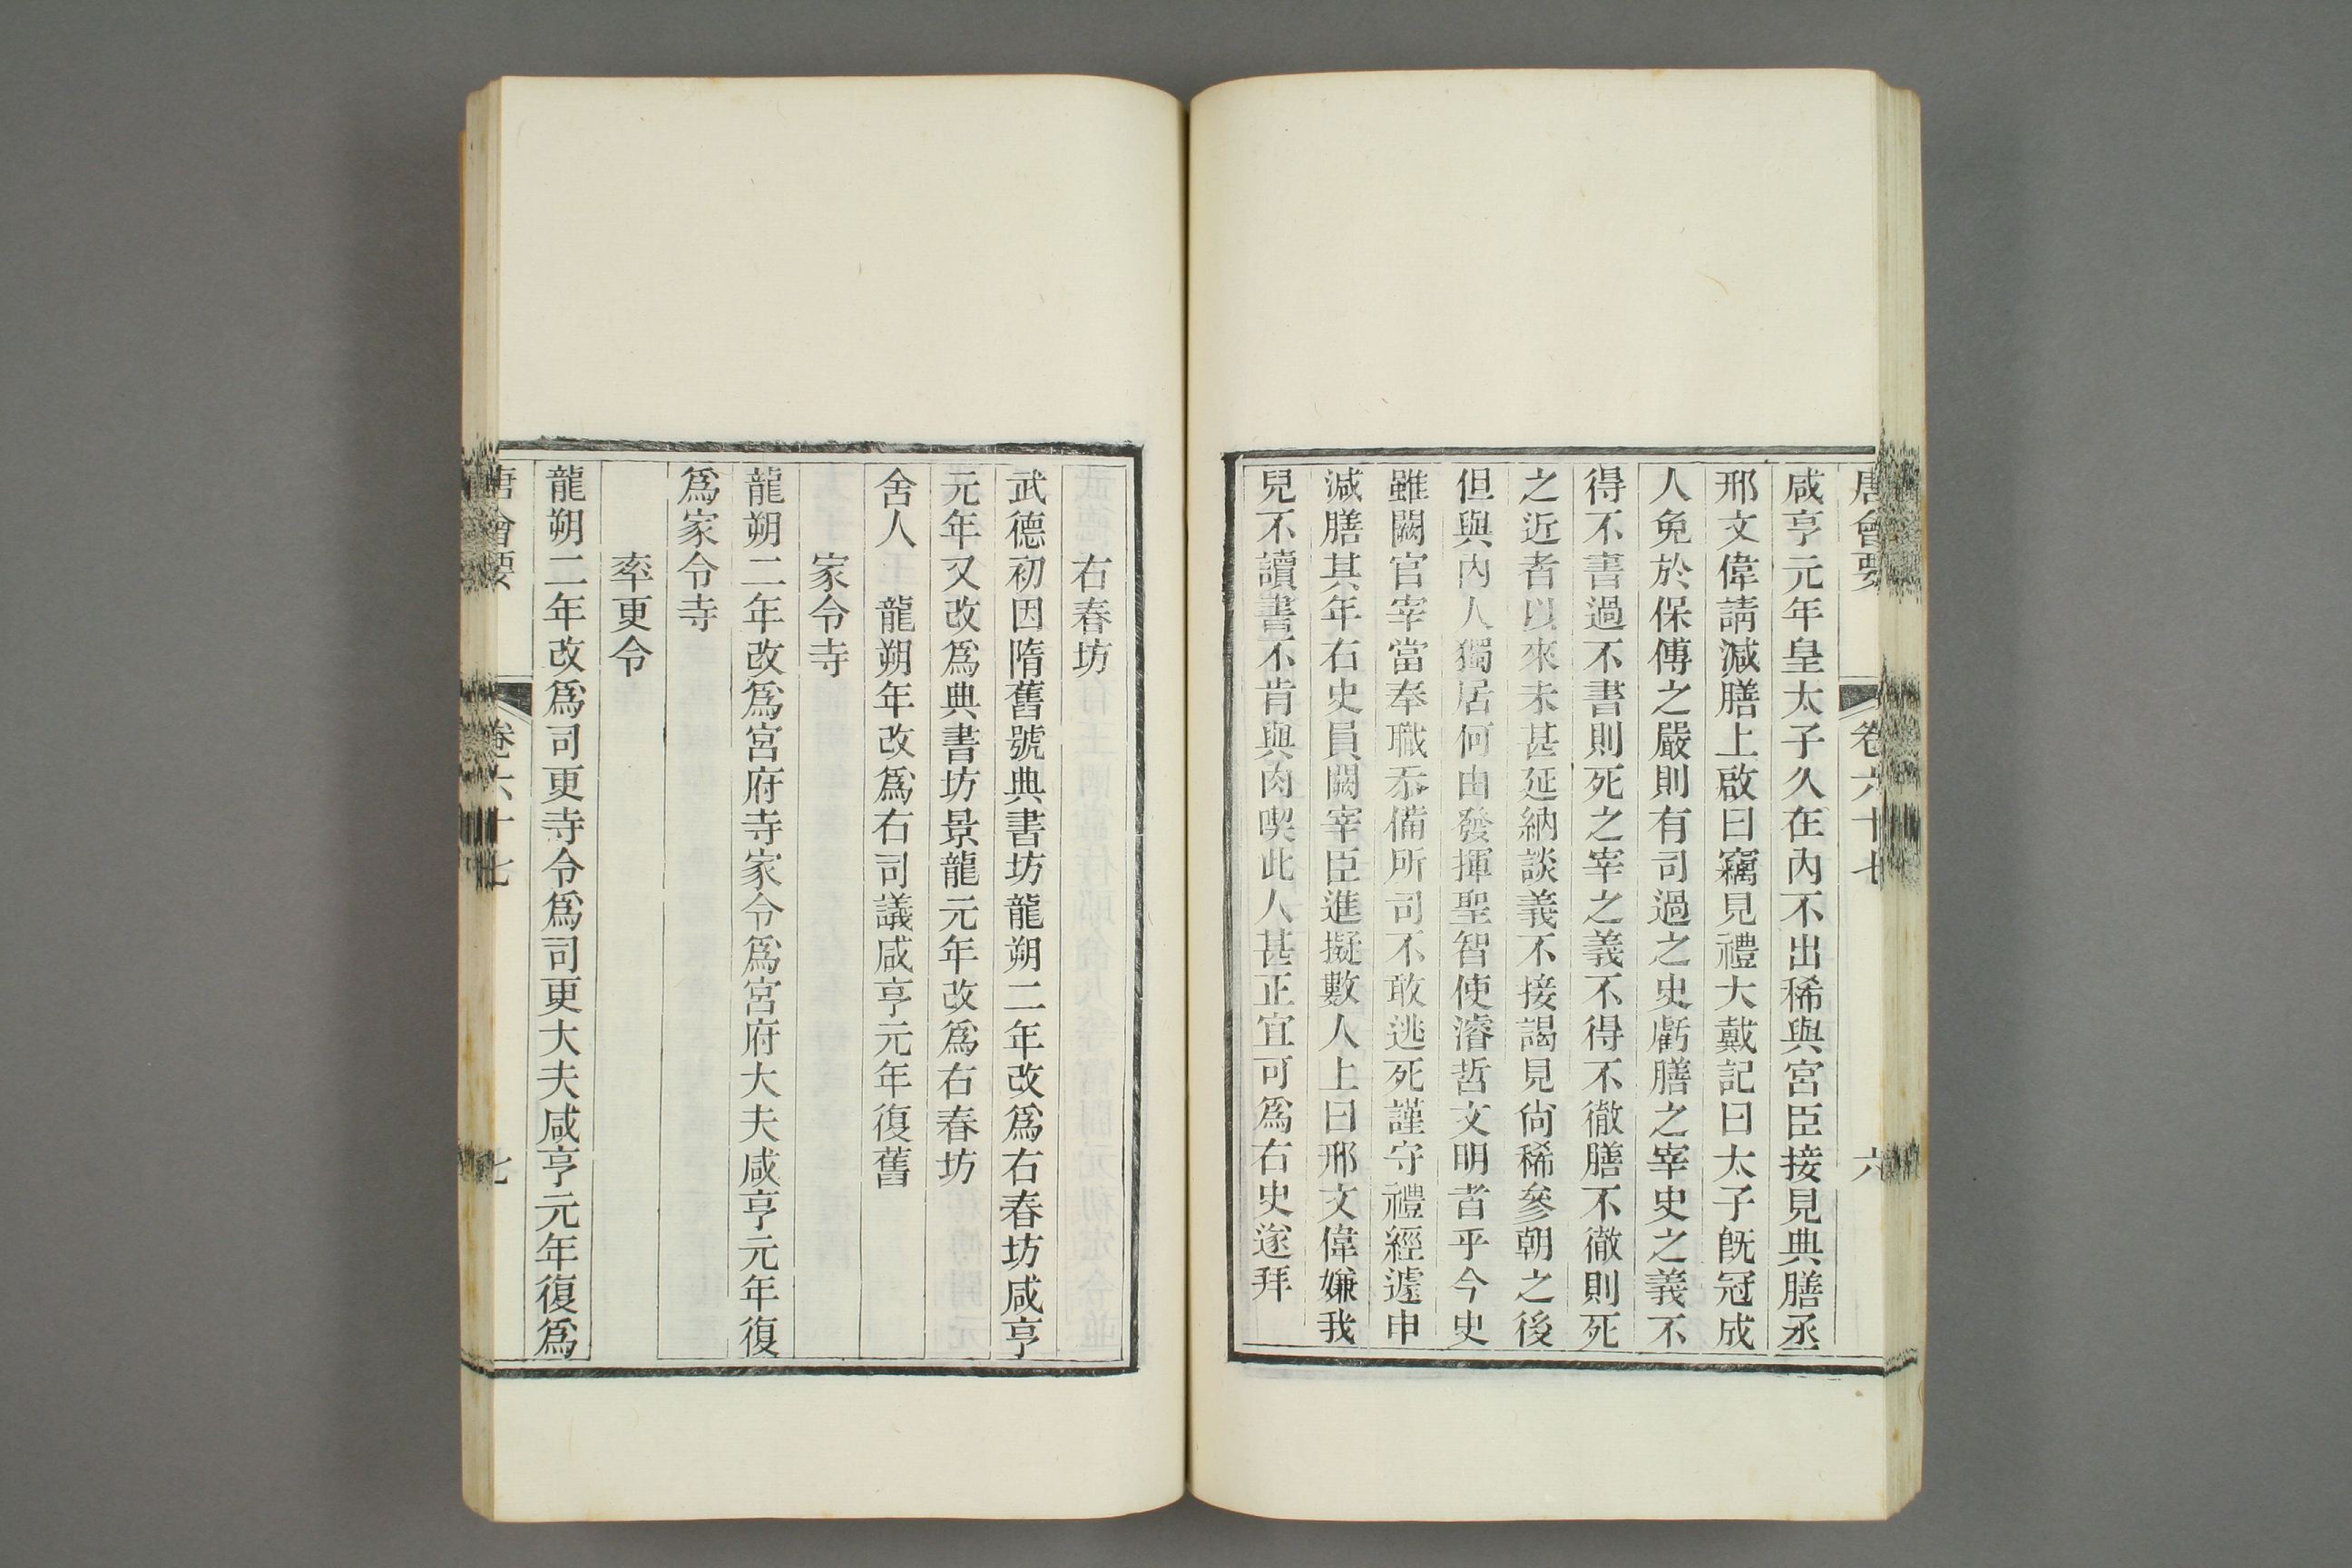 唐會要 卷六十七 六
咸亨元年皇太子久在內不出稀與宮臣接見典膳丞
邢文偉請減膳上啟曰竊見禮大戴記曰太子旣冠成
人免於保傅之嚴則有司過之史虧膳之宰史之義不
得不書過不書則死之宰之義不得不徹膳不徹則死
之近者以來未甚延納談義不接謁見尙稀參朝之後
但與內人獨居何由發揮聖智使濬哲文明者乎今史
雖闕官宰當奉職忝備所司不敢逃死謹守禮經遽申
減膳其年右史員闕宰臣進擬數人上曰邢文偉嫌我
兒不讀書不肯與肉喫此人甚正宜可爲右史遂拜
右春坊
武德初因隋舊號典書坊龍朔二年改爲右春坊咸亨
元年又改爲典書坊景龍元年改爲右春坊
舍人 龍朔年改爲右司議咸亨元年復舊
家令寺
龍朔二年改爲宮府寺家令爲宮府大夫咸亨元年復
爲家令寺
率更令
龍朔二年改爲司更寺令爲司更大夫咸亨元年復爲
唐會要 卷六十七 七